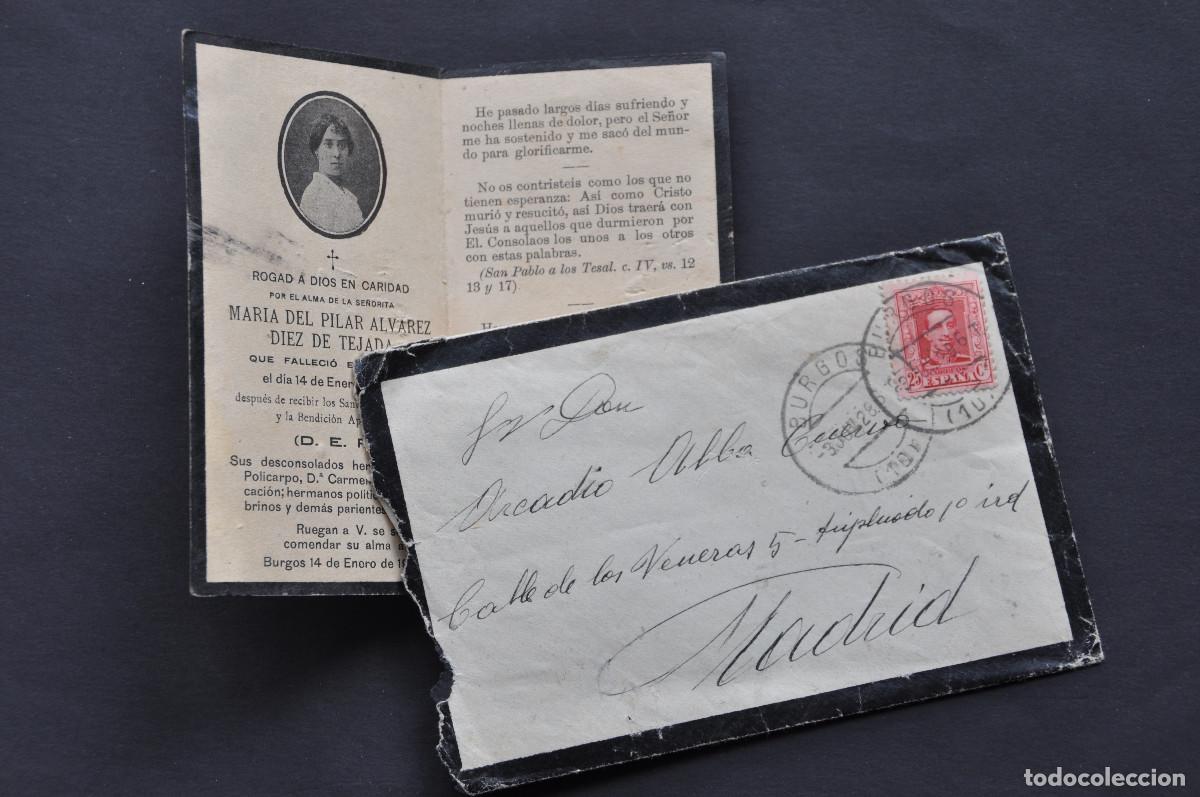 ROGAD A DIOS EN CARIDAD
POR EL ALMA DE LA SEÑORITA
MARIA DEL PILAR ALVAREZ
DIEZ DE TEJADA
QUE FALLECIÓ E
el día 14 de Ener
después de recibir los San
y la Bendición Ap
(D. E.
Sus desconsolados her
Policarpo, D.ª Carme
cación; hermanos politi
brinos y demás pariente
Ruegan a V. se s
comendar su alma a
Burgos 14 de Enero de 1
He pasado largos días sufriendo y
noches llenas de dolor, pero el Señor
me ha sostenido y me sacó del mun-
do para glorificarme.
No os contristeis como los que no
tienen esperanza: Así como Cristo
murió y resucitó, así Dios traerá con
Jesús a aquellos que durmieron por
El. Consolaos los unos a los otros
con estas palabras.
(San Pablo a los Tesal. c. IV, vs. 12
13 y 17).
Sr Don
Arcadio Alba Cuervo
Calle de los Veneras 5 - 1º izd
Madrid
BURGOS
BURGOS
(10)
25 ESPAÑA Cs
todocoleccion